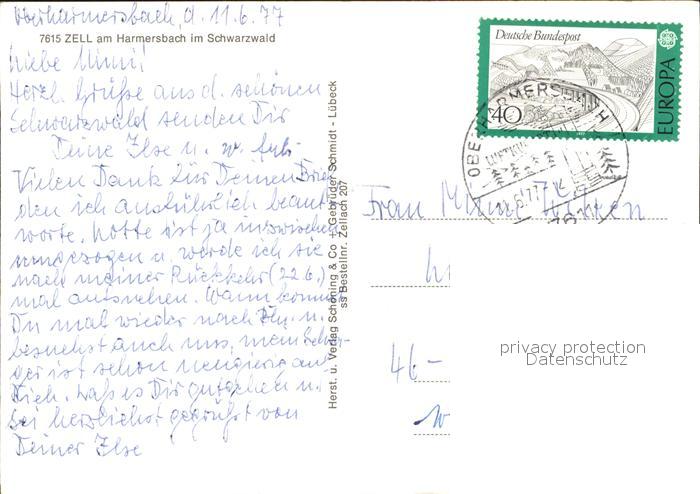 Oberharmersbach, d. 11.6.77
7615 ZELL am Harmersbach im Schwarzwald
Liebe Minni!
Herzl. Grüße aus d. schönen
Schwarzwald senden Dir
Deine Ilse u.
Vielen Dank für Deinen Brief
den ich ausführlich beant
worte. Lotte ist ja inzwischen
umgezogen u. werde ich sie
nach meiner Rückkehr (22.6.)
mal aufsuchen. Wann kommst
Du mal wieder nach u.
besuchst auch uns, mein
ist schon neugierig auf
Dich. Laß es Dir gutgehen u.
sei herzlichst gegrüßt von
Deiner Ilse
Herst. u. Verlag Schöning & Co + Gebrüder Schmidt - Lübeck
ss Bestellnr. Zellach 207
Deutsche Bundespost
40
EUROPA
OBERHARMERSBACH
11.6.77
Frau
46-
privacy protection
Datenschutz